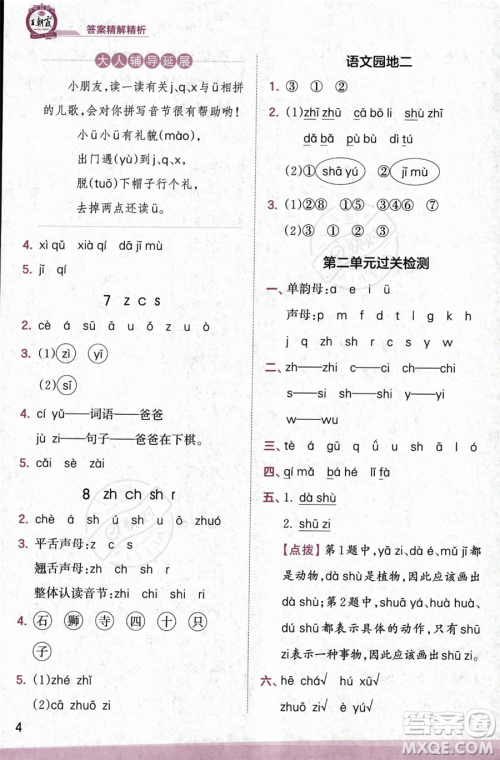 王朝霞
答案精解精析
大人辅导延展
小朋友,读一读有关j、q、x和ü相拼
的儿歌,会对你拼写音节很有帮助哟!
小ü小ü有礼貌(mào),
出门遇(yù)到j、q、x,
脱(tuō)下帽子行个礼,
去掉两点还读ü。
4. xì qǔ  xià qí  dā jī mù
5. jī  qí
7  z c s
2. cè  á  sū  ā  è  zū
3. (1)zì  yī
(2)sī
4. cí yǔ——词语——爸爸
jù zi——句子——爸爸在下棋。
5. cǎi  sè  zài
8  zh ch sh r
2. chē  á  ú  shú  ù  zhuō
3. 平舌声母:z  c  s
翘舌声母:zh  sh  r
整体认读音节:zi  ci  si
4. 石  狮  寺  四  十  只
子
5. (1)zhé  zhǐ
(2)cā  zhuō  zi
4
语文园地二
2. ③  ①  ②
3. (1)zhī zhū  cā bō li  shù zhī
dǎ bǎ  pù bù  dú shū
(2)①shā yú  ②jī mù
3. (1)①  ②  ③  ④  ⑤  ⑥
(2)①  ③  ②
第二单元过关检测
一、单韵母:a  e  i  ü
声母:p  r  w  f  t  d  h
j  q  g  k  l
二、z——zh  zi——zhi  c——ch
s——sh  si——shi
四、qí mǎ  bá hé  chā zuò
五、1. dà shù
2. shū zi
【点拨】第1题中,yā zi、dà mǐ
都是动物,dà shù是植物,因此应该画出
dà shù。第2题中,shuā yá、zhuō
yú都表示具体的动作,而shū zi
表示一种事物,因此应该画出shū zi。
六、hē chá√  hú xū√  zhuō zi√